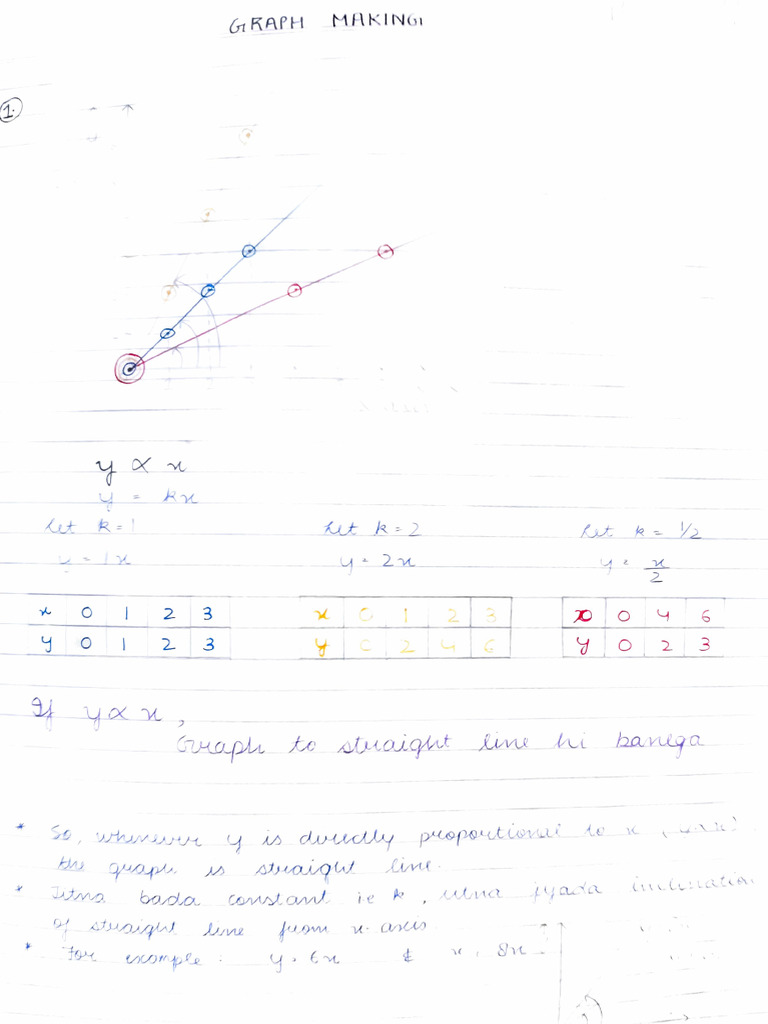 GRAPH MAKING
1.
y ∝ x
y = kx
Let k = 1 Let k = 2 Let k = 1/2
y = 1x y = 2x y = x/2
x 0 1 2 3 x 0 1 2 3 x 0 4 6
y 0 1 2 3 y 0 2 4 6 y 0 2 3
If y ∝ x,
Graph to straight line hi banega
* So, whenever y is directly proportional to x
the graph is straight line.
* Jitna bada constant ie k, utna jyada inclination
of straight line from x-axis.
* For example: y = 6x & 8x